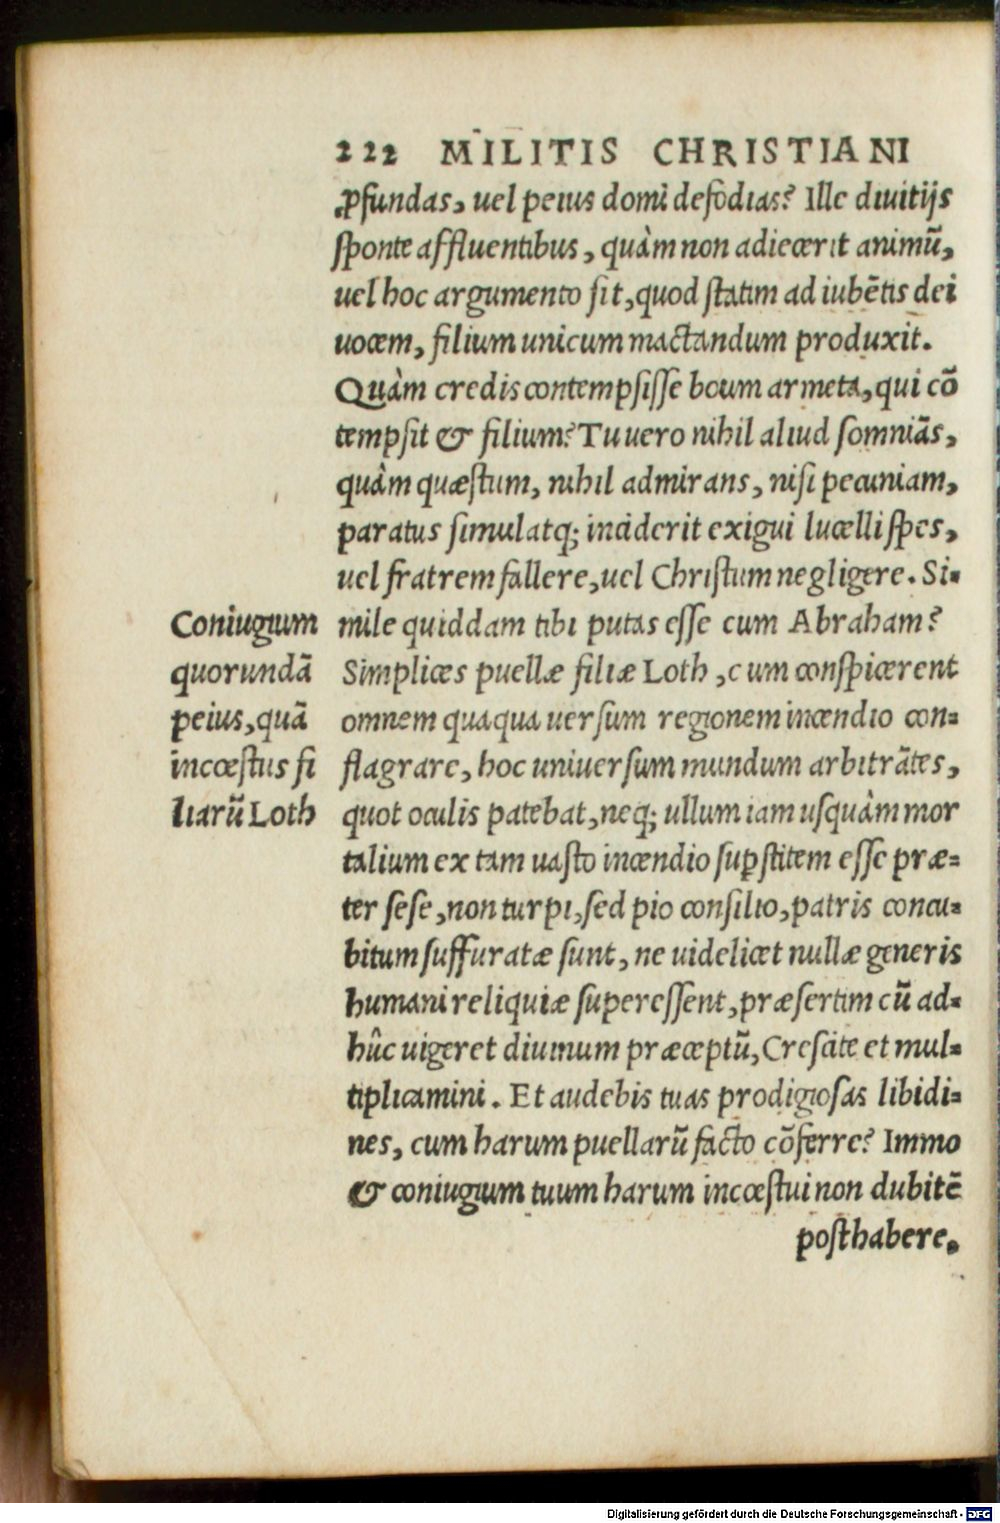 222 MILITIS CHRISTIANI
ꝓfundas, uel peius domi defodias? Ille diuitijs
sponte affluentibus, quàm non adiecerit animũ,
uel hoc argumento sit, quod statim ad iubẽtis dei
uocem, filium unicum mactandum produxit.
Quàm credis contempsisse boum armeta, qui cõ
tempsit & filium? Tu uero nihil aliud somniãs,
quàm quæstum, nihil admirans, nisi pecuniam,
paratus simulatq; inciderit exigui lucelli spes,
uel fratrem fallere, uel Christum negligere. Si-
mile quiddam tibi putas esse cum Abraham?
Simplices puellæ filiæ Loth, cum conspicerent
omnem quaqua uersum regionem incendio con-
flagrare, hoc uniuersum mundum arbitrãtes,
quot oculis patebat, neq; ullum iam usquàm mor
talium ex tam uasto incendio suꝑstitem esse præ-
ter sese, non turpi, sed pio consilio, patris concu-
bitum suffuratæ sunt, ne uidelicet nullæ generis
humani reliquiæ superessent, præsertim cũ ad-
hûc uigeret diuinum præceptũ, Crescite et mul-
tiplicamini. Et audebis tuas prodigiosas libidi-
nes, cum harum puellarũ facto cõferre? Immo
& coniugium tuum harum incœstui non dubitẽ
posthabere.
Coniugium
quorundã
peius, quã
incœstus fi
liarũ Loth
Digitalisierung gefördert durch die Deutsche Forschungsgemeinschaft - DFG